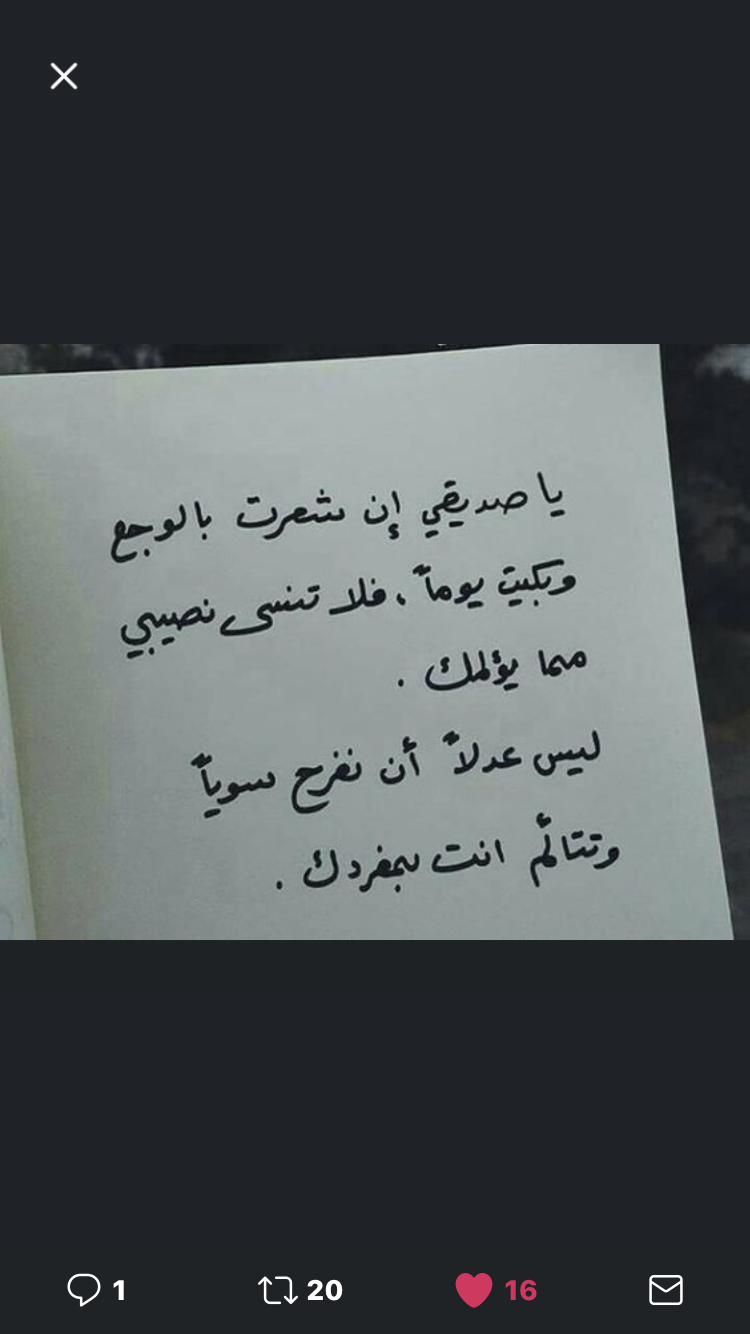 يا صديقي إن شعرت بالوجع
وبكيت يوماً ، فلا تنسى نصيبي
مما يؤلمك .
ليس عدلاً أن نفرح سوياً
وتتألّم انت بمفردك .
1 20 16